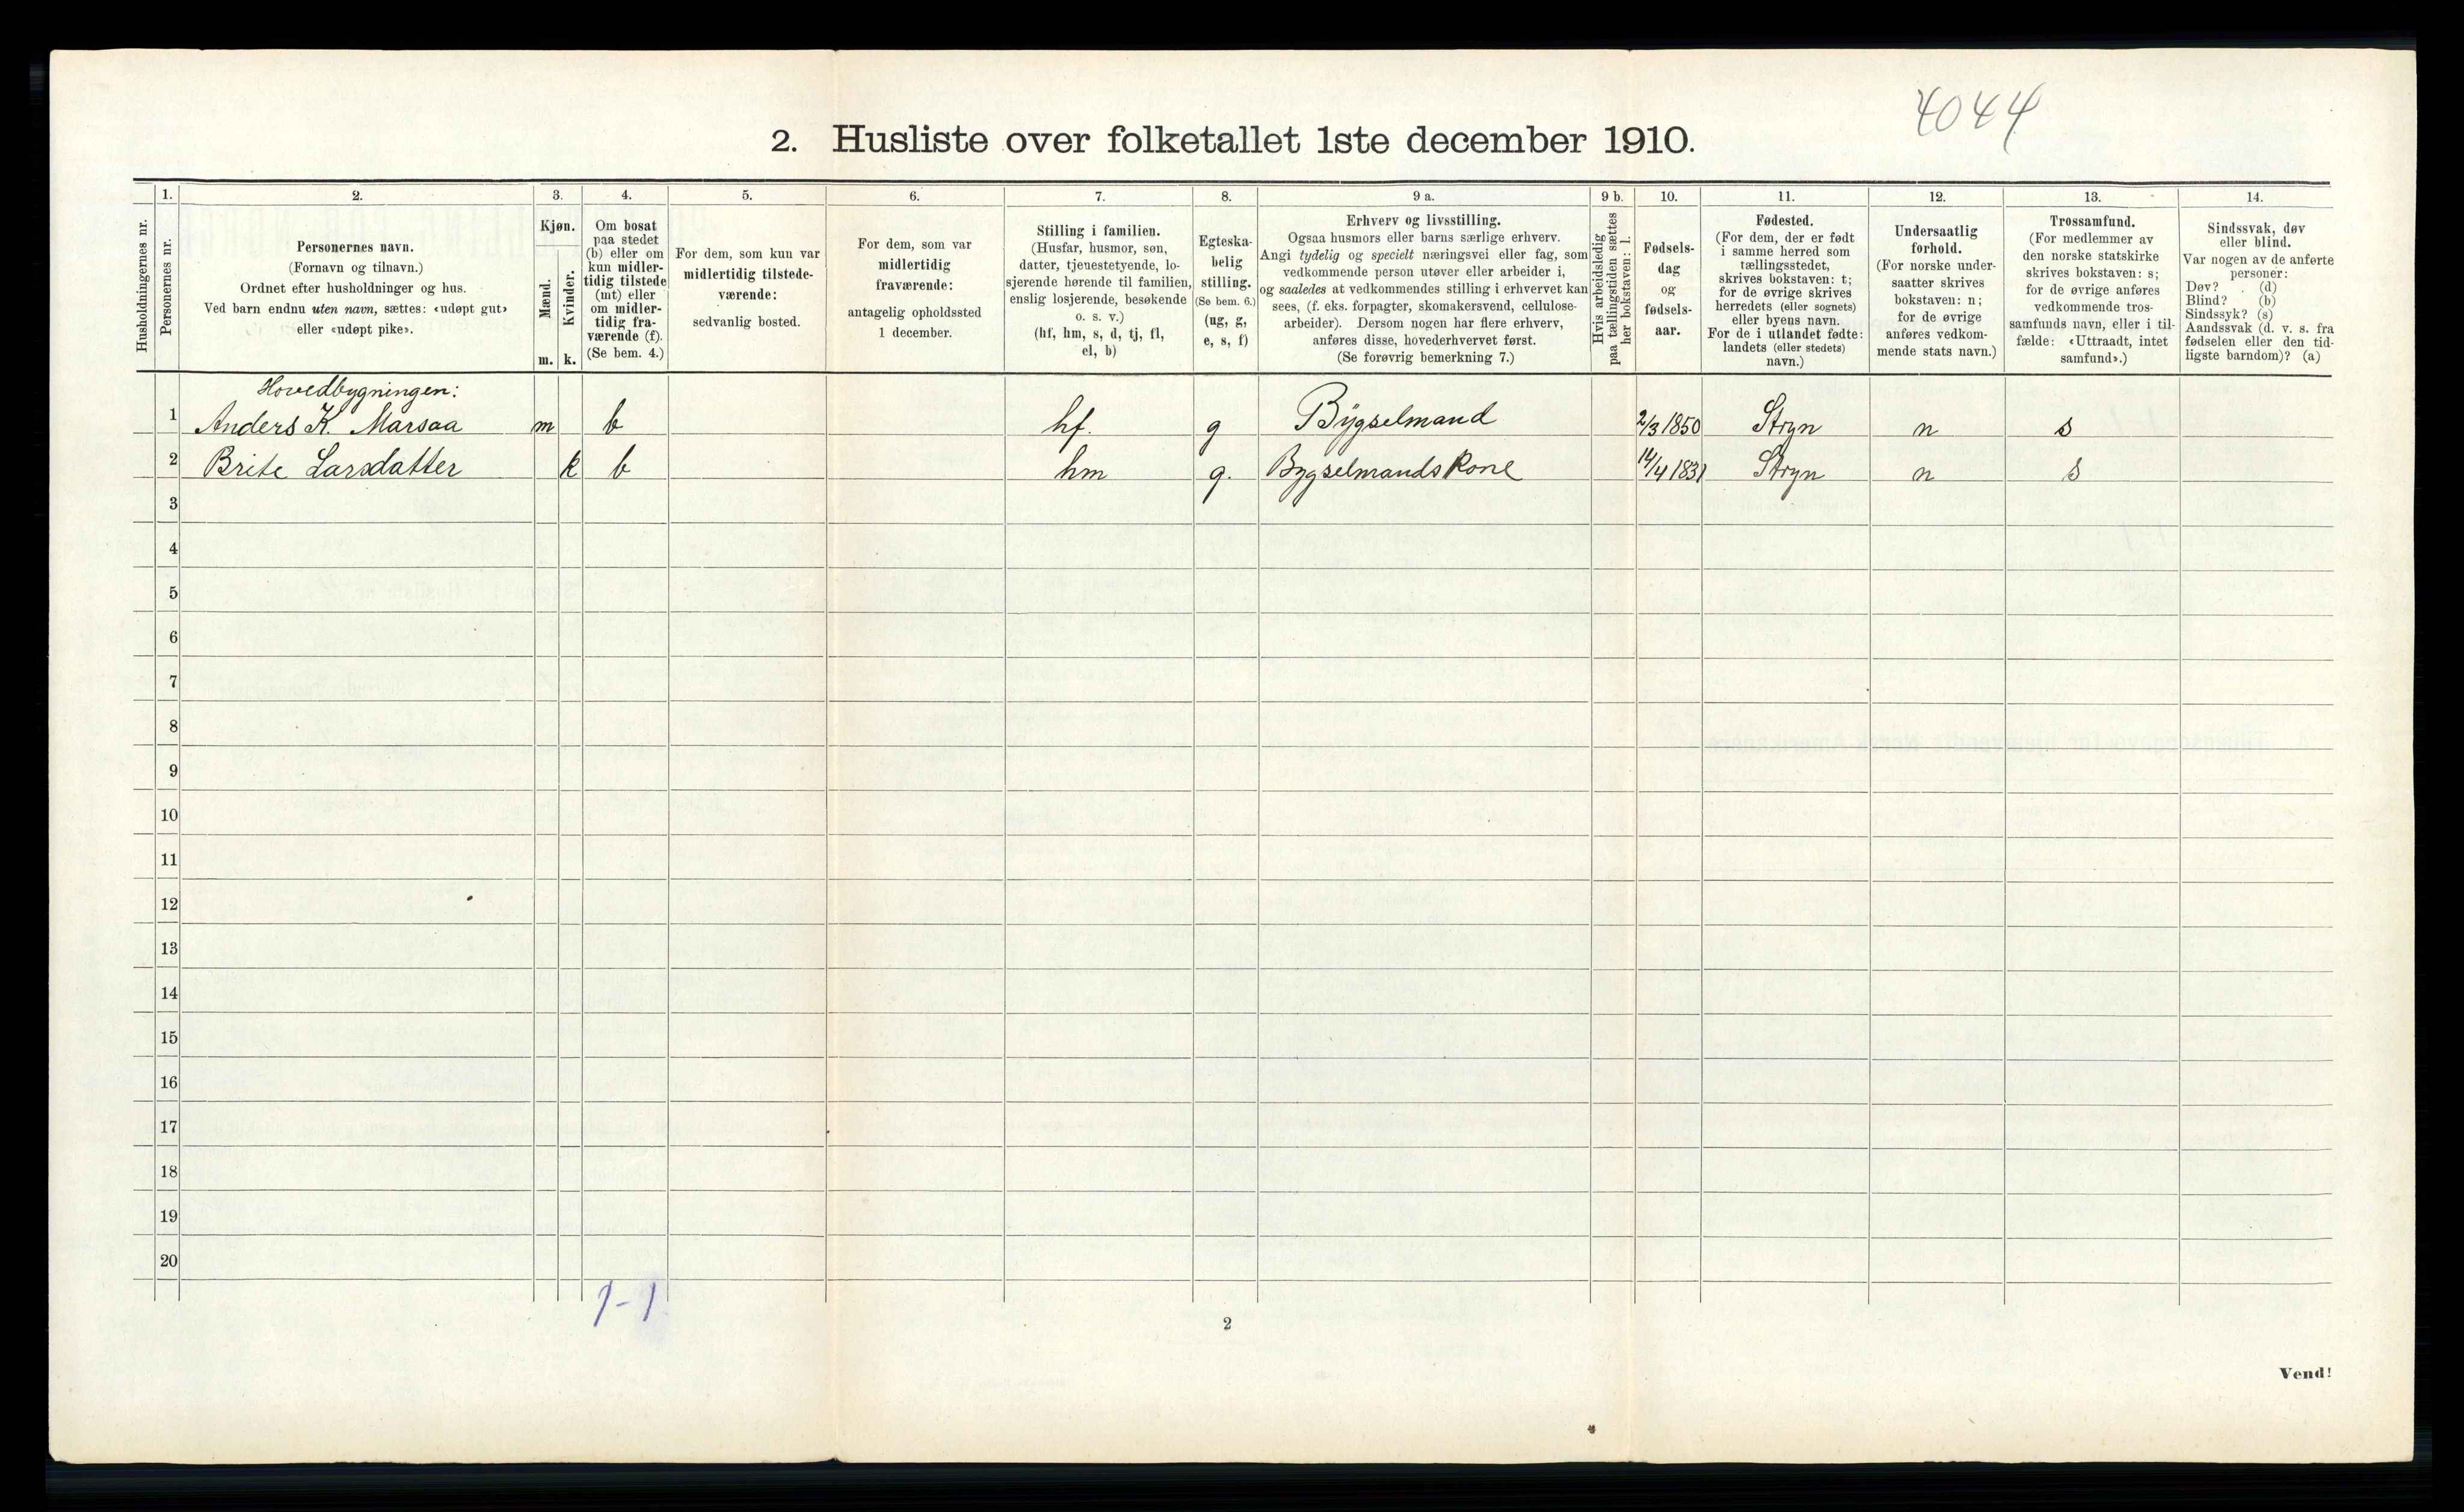 4044
2. Husliste over folketallet 1ste december 1910.
Husholdningernes nr.
1.
Personernes nr.
2.
Personernes navn.
(Fornavn og tilnavn.)
Ordnet efter husholdninger og hus.
Ved barn endnu uten navn, sættes: «udøpt gut»
eller «udøpt pike».
3.
Kjøn.
Mænd.
Kvinder.
m. k.
4.
Om bosat
paa stedet
(b) eller om
kun midler-
tidig tilstede
(mt) eller
om midler-
tidig fra-
værende (f).
(Se bem. 4.)
5.
For dem, som kun var
midlertidig tilstede-
værende:
sedvanlig bosted.
6.
For dem, som var
midlertidig
fraværende:
antagelig opholdssted
1 december.
7.
Stilling i familien.
(Husfar, husmor, søn,
datter, tjenestetyende, lo-
sjerende hørende til familien,
enslig losjerende, besøkende
o. s. v.)
(hf, hm, s, d, tj, fl,
el, b)
8.
Egteska-
belig
stilling.
(Se bem. 6.)
(ug, g,
e, s, f)
9 a.
Erhverv og livsstilling.
Ogsaa husmors eller barns særlige erhverv.
Angi tydelig og specielt næringsvei eller fag, som
vedkommende person utøver eller arbeider i,
og saaledes at vedkommendes stilling i erhvervet kan
sees, (f. eks. forpagter, skomakersvend, cellulose-
arbeider). Dersom nogen har flere erhverv,
anføres disse, hovederhvervet først.
(Se forøvrig bemerkning 7.)
9 b.
Hvis arbeidsledig
paa tællingstiden sættes
her bokstaven: l.
10.
Fødsels-
dag
og
fødsels-
aar.
11.
Fødested.
(For dem, der er født
i samme herred som
tællingsstedet,
skrives bokstaven: t;
for de øvrige skrives
herredets (eller sognets)
eller byens navn.
For de i utlandet fødte:
landets (eller stedets)
navn.)
12.
Undersaatlig
forhold.
(For norske under-
saatter skrives
bokstaven: n;
for de øvrige
anføres vedkom-
mende stats navn.)
13.
Trossamfund.
(For medlemmer av
den norske statskirke
skrives bokstaven: s;
for de øvrige anføres
vedkommende tros-
samfunds navn, eller i til-
fælde: «Uttraadt, intet
samfund».)
14.
Sindssvak, døv
eller blind.
Var nogen av de anførte
personer:
Døv? . (d)
Blind? (b)
Sindssyk? (s)
Aandssvak (d. v. s. fra
fødselen eller den tid-
ligste barndom)? (a)
Hovedbygningen:
1 Anders K. Marsaa m b hf. g Bygselmand 2/3 1850 Stryn n s
2 Brite Larsdatter k b hm g. Bygselmands Kone 14/4 1831 Stryn n s
3
4
5
6
7
8
9
10
11
12
13
14
15
16
17
18
19
20
1-1
2
Vend!